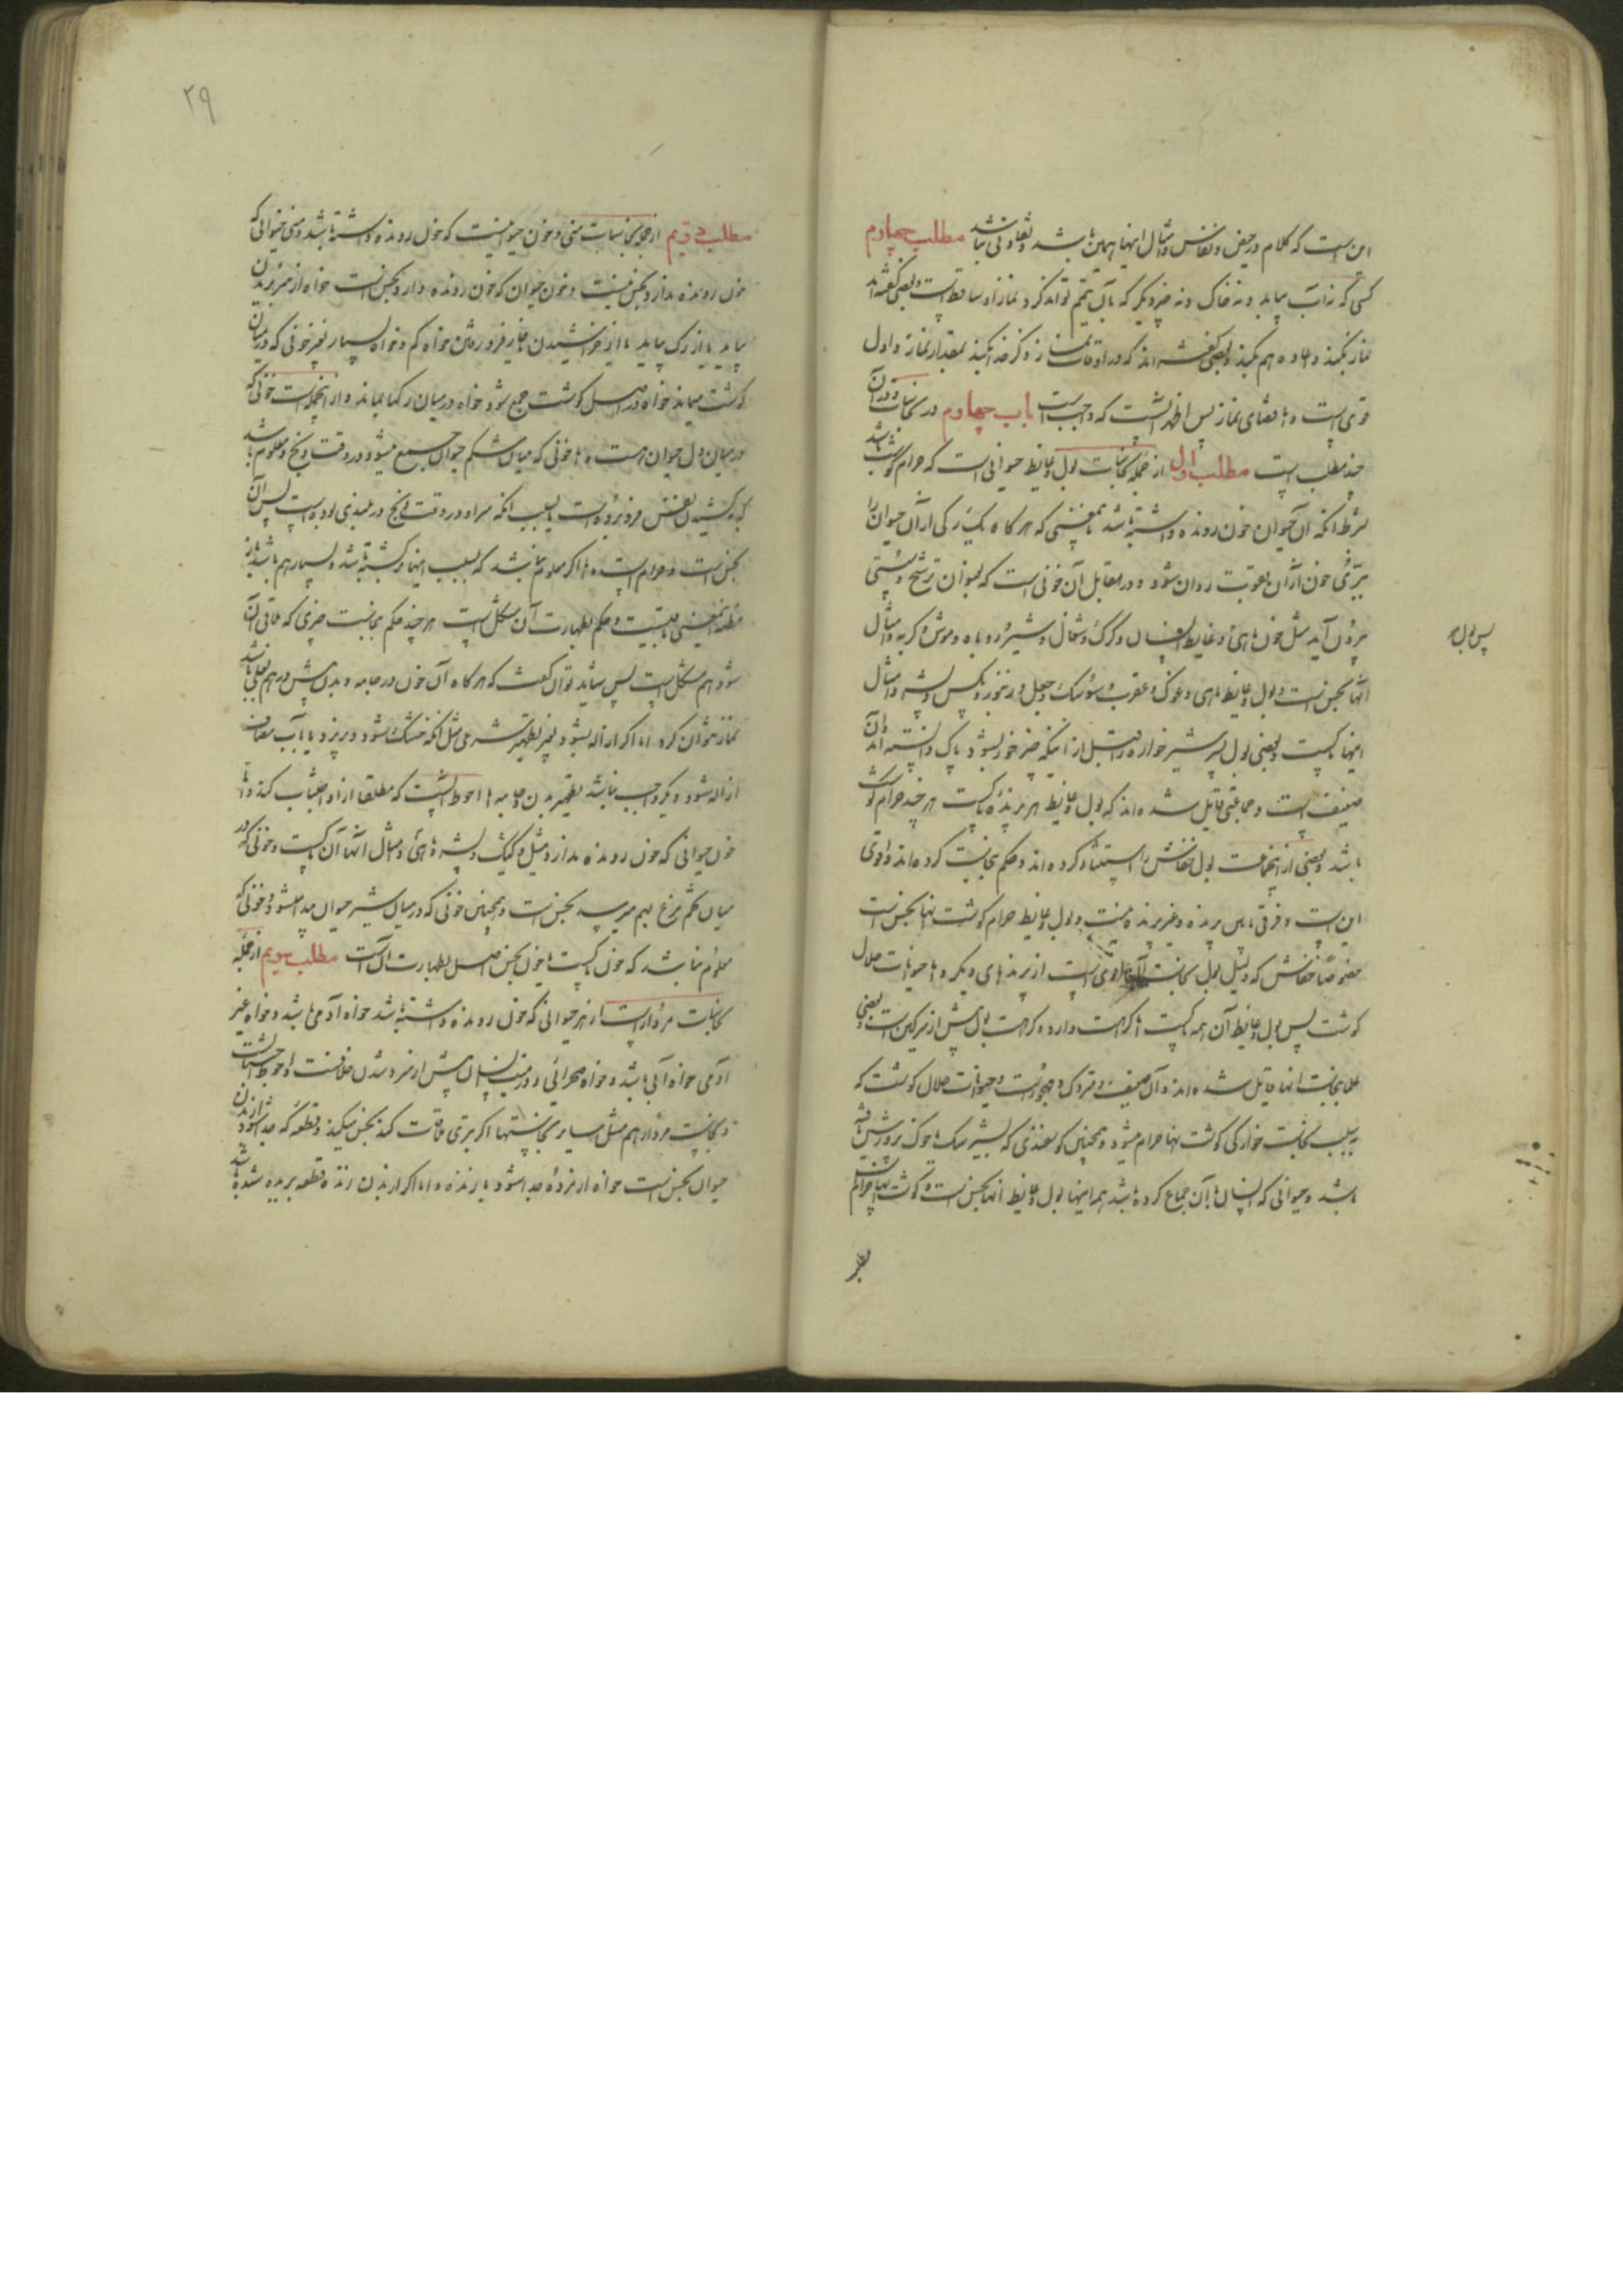 این است که کلام در حیض و نفاس و امثال اینها همین باشد و تفاوتی نباشد مطلب چهارم
کسی که نه آب بیابد و نه خاک و نه چیز دیگر که بآن تیمم تواند کرد نماز از او ساقط است و بعضی گفته‌اند
نماز بکند و اعاده هم بکند و بعضی گفته‌اند که در اوقات نماز ذکر خدا بکند بمقدار نماز و اول
قوی است و اما قضای نماز پس اظهر آنست که واجب است باب چهارم در نجاسات و در آن
چند مطلب است مطلب اول از جمله نجاسات بول و غایط حیوانی است که حرام گوشت باشد
بشرط آنکه آن حیوان خون رونده داشته باشد بمعنی که هر گاه یک رگی از آن حیوان را
ببرّی خون از آن بقوت روان شود و در مقابل آن خونی است که بعنوان ترشح و سستی
بیرون آید مثل خون ماهی و غایط انسان و گرگ و شغال و شیر و روباه و موش و گربه و امثال
پس بول و
آنها نجس است و بول و غایط ماهی و غوک و عقرب و سوسک و جعل و زنبور و مگس و پشه و امثال
اینها پاکست و بعضی بول پسر شیرخواره را قبل از اینکه چیز خور بشود پاک دانسته‌اند و آن
ضعیف است و جماعتی قایل شده‌اند که بول و غایط هر پرنده پاکست هر چند حرام گوشت
باشد و بعضی از این جماعت بول خفاش را استثنا کرده‌اند و حکم بنجاست کرده‌اند و اقوی
این است و فرقی مابین پرنده و غیر پرنده نیست و بول و غایط حرام گوشت آنها نجس است
خصوصا خفاش که دلیل بول نجاست اقوی است از پرندهای دیگر و اما حیوانات حلال
گوشت پس بول و غایط آن همه پاکست اما کراهت دارد و کراهت بول بیش از سرگین است و بعضی
علما بنجاست آنها قایل شده‌اند و آن ضعیف و متروک و مهجور است و حیوانات حلال گوشت که
بسبب نجاست خوارگی گوشت آنها حرام میشود و همچنین گوسفندی که بشیر سگ یا خوک پرورش یافته
باشد و حیوانی که انسان با آن جماع کرده باشد همه اینها بول و غایط آنها نجس است و گوشت آنها حرام
بغیر
۲۹
مطلب دویم از جمله نجاسات منی و خون حیوانیست که خون رونده داشته باشد و منی حیوانی که
خون رونده ندارد نجس نیست و خون حیوان که خون رونده دارد نجس است خواه از سر بریدن
بیاید یا از رگ بیاید یا از خراشیدن یا خار فرو رفتن خواه کم و خواه بسیار بغیر خونی که در میان
گوشت میماند خواه در اصل گوشت جمع شود خواه در میان رگها بماند و از آنجمله است خونی که
در میان دل حیوان هست و اما خونی که میان شکم حیوان جمع میشود در وقت ذبح و معلوم باشد
که بکشیدن نفس فرو برده است یا بسبب آنکه سر او در وقت ذبح در بلندی بوده است پس آن
نجس است و حرام است و اما اگر معلوم نباشد که بسبب اینها برگشته باشد و بسیار هم باشد باز
مظنه بمعنی باقیست و حکم بطهارت آن مشکل است هر چند حکم بنجاست چیزی که ملاقی آن
شود هم مشکل است پس شاید توان گفت که هر گاه آن خون در جامه و بدن بیش از درهم بغلی باشد
نماز نتوان کرد اما اگر ازاله بشود بغیر تطهیر شرعی مثل آنکه خشک شود و بریزد یا بآب مضاف
ازاله شود دیگر واجب نباشد تطهیر بدن و جامه اما احوط آنست که مطلقا از او اجتناب کند و اما
خون حیوانی که خون رونده ندارد مثل کیک و پشه و ماهی و امثال آنها آن پاکست و خونی که در
میان تخم مرغ بهم میرسد نجس است و همچنین خونی که در میان شیر حیوان پیدا میشود و خونی که
معلوم نباشد که خون پاکست یا خون نجس اصل بطهارت آنست مطلب سویم از جمله
نجاسات مردار است از هر حیوانی که خون رونده داشته باشد خواه آدمی باشد و خواه غیر
آدمی خواه آبی باشد و خواه صحرائی و در میت انسان پیش از سرد شدن خلافست و احوط اجتنابست
و نجاست مردار هم مثل سایر نجاستها اگر بتری ملاقات کند نجس میکند و قطعه که جدا شود از بدن
حیوان نجس است خواه از مرده جدا شود یا زنده و اما اگر از بدن زنده قطعه بریده شده باشد